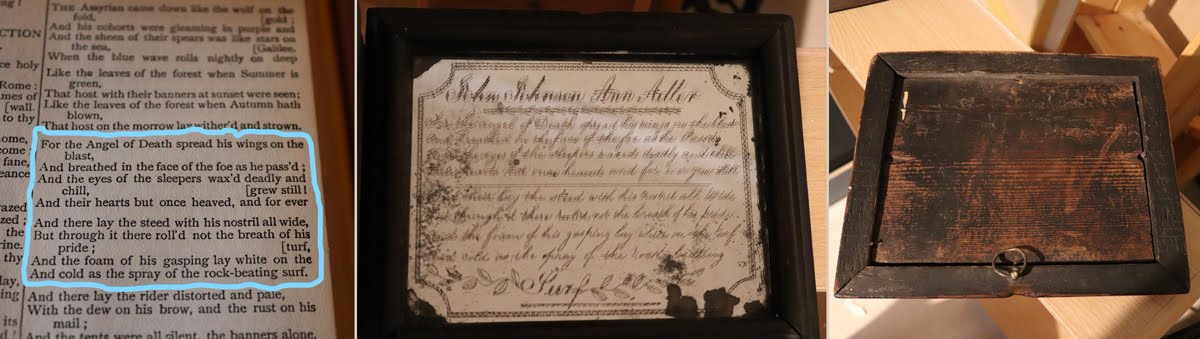 CTION
ce holy
Rome:
mes of
[wall.
to thy
ome,
come
fane,
eance
azed
zed;
the
rine.
thy
lay,
ing
its
THE Assyrian came down like the wolf on the
fold, [gold;
And his cohorts were gleaming in purple and
And the sheen of their spears was like stars on
the sea, [Galilee.
When the blue wave rolls nightly on deep
Like the leaves of the forest when Summer is
green,
That host with their banners at sunset were seen:
Like the leaves of the forest when Autumn hath
blown,
That host on the morrow lay wither'd and strown.
For the Angel of Death spread his wings on the
blast,
And breathed in the face of the foe as he pass'd;
And the eyes of the sleepers wax'd deadly and
chill, [grew still!
And their hearts but once heaved, and for ever
And there lay the steed with his nostril all wide,
But through it there roll'd not the breath of his
pride; [turf,
And the foam of his gasping lay white on the
And cold as the spray of the rock-beating surf.
And there lay the rider distorted and pale,
With the dew on his brow, and the rust on his
mail;
And the tents were all silent, the banners alone,
John Johnson Ann Adler
For the angel of Death spread his wings on the blast
and breathed in the face of the foe as he
the eyes of the sleepers waxed deadly and chill
hearts but once heaved and for ever still
there lay the steed with his nostril all wide
through it there not the breath of his pride.
and the foam of his gasping lay white on the turf
and cold as the spray of the rock beating
Surf